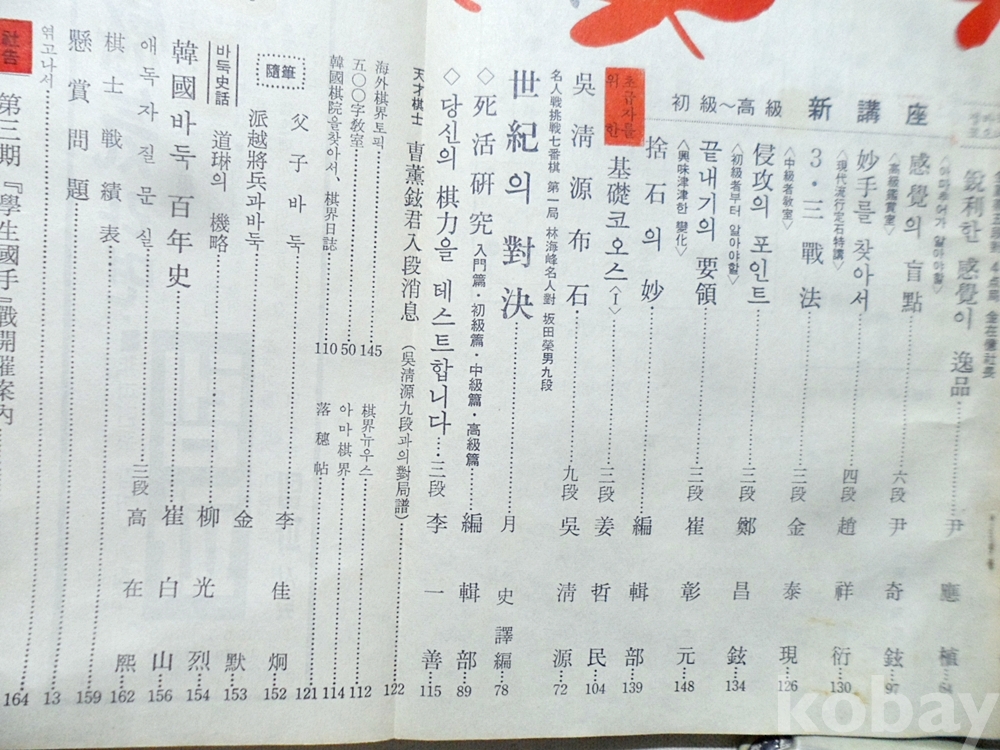 銳利한 感覺이 逸品 尹 應 植 64
〈아마추어가 알아야할〉
感覺의 盲點 六段 尹 奇 鉉 97
〈高級鑑賞室〉
妙手를 찾아서 四段 趙 祥 衍 130
〈現代流行定石特講〉
3·三 戰法 三段 金 泰 現 126
〈中級者教室〉
侵攻의 포인트 三段 鄭 昌 鉉 134
〈初級者부터 알아야할〉
끝내기의 要領 三段 崔 彰 元 148
〈興味津津한 變化〉
初級~高級 新講座
捨石의 妙 編 輯 部 139
초급자를 위한
基礎코오스〈Ⅰ〉 三段 姜 哲 民 104
吳淸源布石 九段 吳 淸 源 72
名人戰挑戰七番棋 第一局 林海峰名人對 坂田榮男九段
世紀의 對決 月 史 譯編 78
◇死活研究 入門篇·初級篇·中級篇·高級篇 編 輯 部 89
◇당신의 棋力을 테스트합니다 三段 李 一 善 115
天才棋士 曺薰鉉君入段消息 (吳淸源九段과의對局譜) 122
海外棋界토픽 145
五〇〇字教室 50
韓國棋院을찾아서、棋界日誌 110
棋界뉴우스 112
아마棋界 114
落穗帖 121
隨筆
父子바둑 李 佳 炯 152
派越將兵과바둑 金 默 153
바둑史話
道琳의 機略 柳 光 烈 154
韓國바둑百年史 崔 白 山 156
애독자질문실 三段 高 在 熙 162
棋士戰績表 159
懸賞問題 13
엮고나서 164
社告
第三期『學生國手』戰開催案內
kobay